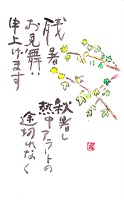 残暑
お見舞!!
申上げます
秋暑し
熱中アラートの
途切れなく